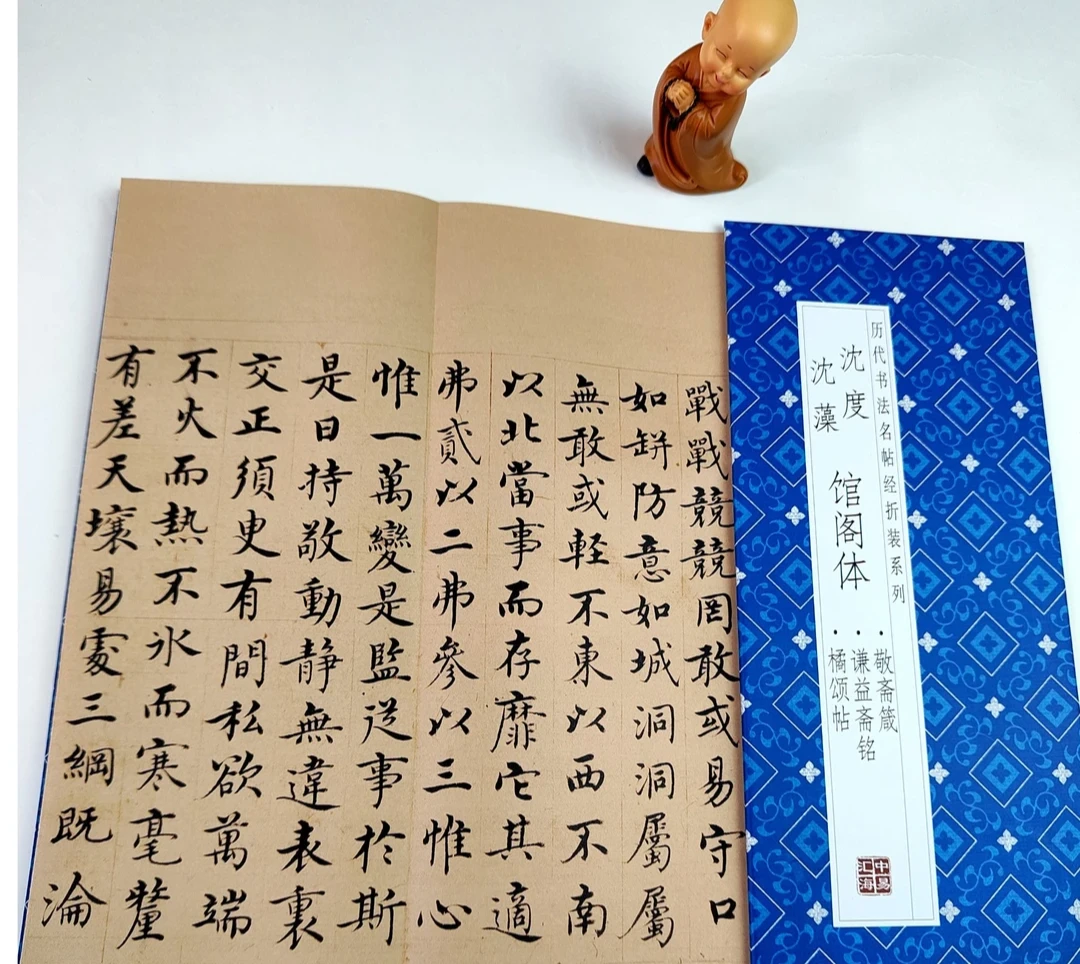 戰戰競競罔敢或易守口
如缾防意如城洞洞屬屬
無敢或軽不東以西不南
以北當事而存靡它其適
弗貳以二弗參以三惟心
惟一萬變是監從事於斯
是日持敬動静無違表裏
交正須臾有間私欲萬端
不火而熱不氷而寒毫釐
有差天壤易處三綱既淪
历代书法名帖经折装系列
沈度
沈藻
馆阁体
·敬斋箴
·谦益斋铭
·橘颂帖
中易
汇海